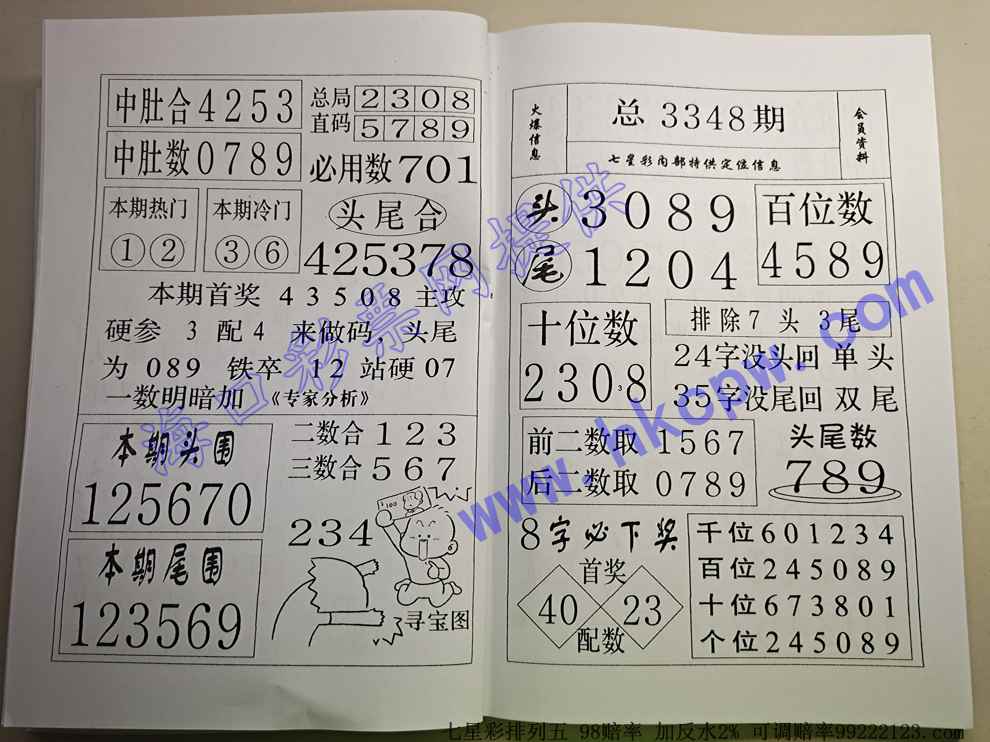 中肚合4253
中肚数0789
总局 2308
直码 5789
必用数701
本期热门
①②
本期冷门
③⑥
头尾合
425378
本期首奖 43508主攻
硬参 3 配4 来做码，头尾
为 089 铁卒 12 站硬07
一数明暗加 《专家分析》
本期头围
125670
本期尾围
123569
二数合 123
三数合 567
234
寻宝图
火爆信息
总 3348期
七星彩内部特供定位信息
会员资料
头 3089
尾 1204
百位数
4589
十位数
2308
3
排除7 头 3尾
24字没头回 单 头
35字没尾回 双 尾
前二数取 1567
后二数取 0789
头尾数
789
8字必下奖
首奖
40 23
配数
千位601234
百位245089
十位673801
个位245089
海口彩票网提供
www.hkcpw.com
七星彩排列五 98赔率 加反水2% 可调赔率99222123.com